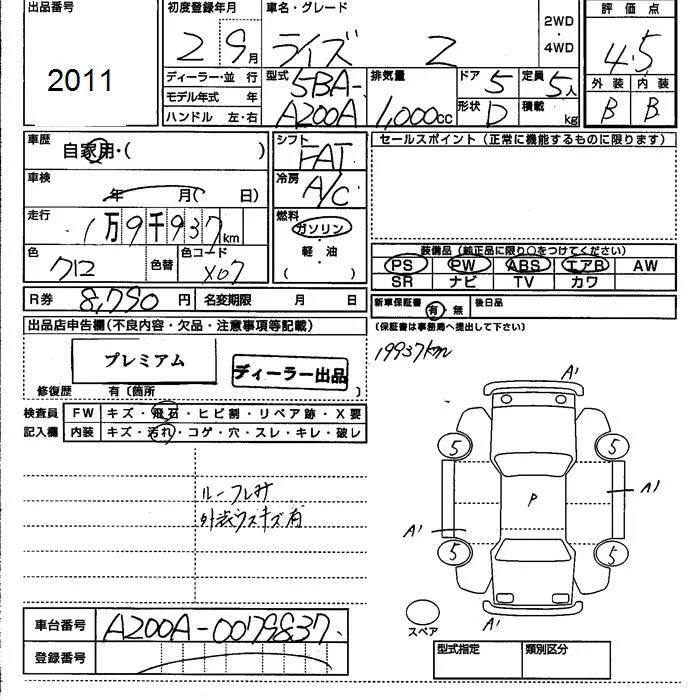 出品番号 初度登録年月 車名・グレード 2WD・4WD 評価点
2011 2 9月 ライズ Z 4.5
ディーラー・並 行 型式 5BA-A200A 排気量 1,000cc ドア 5 定員 5人 外装 内装
モデル年式 年 形状 D 積載 kg B B
ハンドル 左・右
車歴 自家用・( ) シフト FAT セールスポイント (正常に機能するものに限ります)
車検 年 月( 日) 冷房 A/C
走行 1万9千937km 燃料 ガソリン・軽・油 ( )
色 クロ 色替 色コード X07
装備品 (純正品に限り○をつけてください)
PS PW ABS エアB AW
SR ナビ TV カワ
R券 8,790円 名変期限 月 日 新車保証書 有・無 後日品
出品店申告欄(不良内容・欠品・注意事項等記載) (保証書は事務局へ提出して下さい)
19937km
プレミアム ディーラー出品
修復歴 有〔箇所 〕
検査員 FW キズ・飛石・ヒビ割・リペア跡・X要
記入欄 内装 キズ・汚れ・コゲ・穴・スレ・キレ・破レ
A'
5 5
P A'
A'
5 5
A'
スペア
外装ウスキズ有
車台番号 A200A-0079837
登録番号
型式指定 類別区分